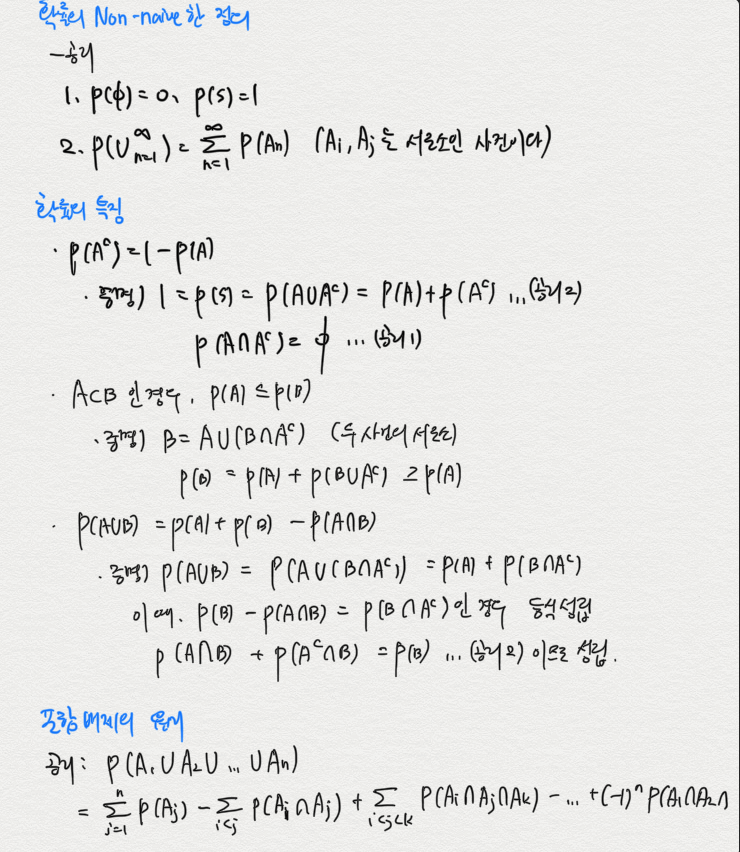 확률의 Non-naive한 정의
– 공리
1. P(∅)=0, P(S)=1
2. P(∪_{n=1}^{∞}) = ∑_{n=1}^{∞} P(An) (Ai, Aj는 서로소인 사건이다)
확률의 특징
· P(A^c)=1-P(A)
· 증명) 1=P(S)=P(A∪A^c)=P(A)+P(A^c) ...(공리2)
P(A∩A^c)=∅ ...(공리1)
· A⊂B 인 경우, P(A)≤P(B)
· 증명) B=A∪(B∩A^c) (두 사건의 서로소)
P(B)=P(A)+P(B∪A^c)≥P(A)
· P(A∪B)=P(A)+P(B)-P(A∩B)
· 증명) P(A∪B)=P(A∪(B∩A^c))=P(A)+P(B∩A^c)
이 때, P(B)-P(A∩B)=P(B∩A^c)인 경우 등식 성립
P(A∩B)+P(A^c∩B)=P(B) ...(공리2) 이므로 성립.
포함 배제의 원리
공리: P(A1∪A2∪...∪An)
= ∑_{j=1}^{n} P(Aj) - ∑_{i<j} P(Ai∩Aj) + ∑_{i<j<k} P(Ai∩Aj∩Ak) - ... +(-1)^n P(A1∩A2∩